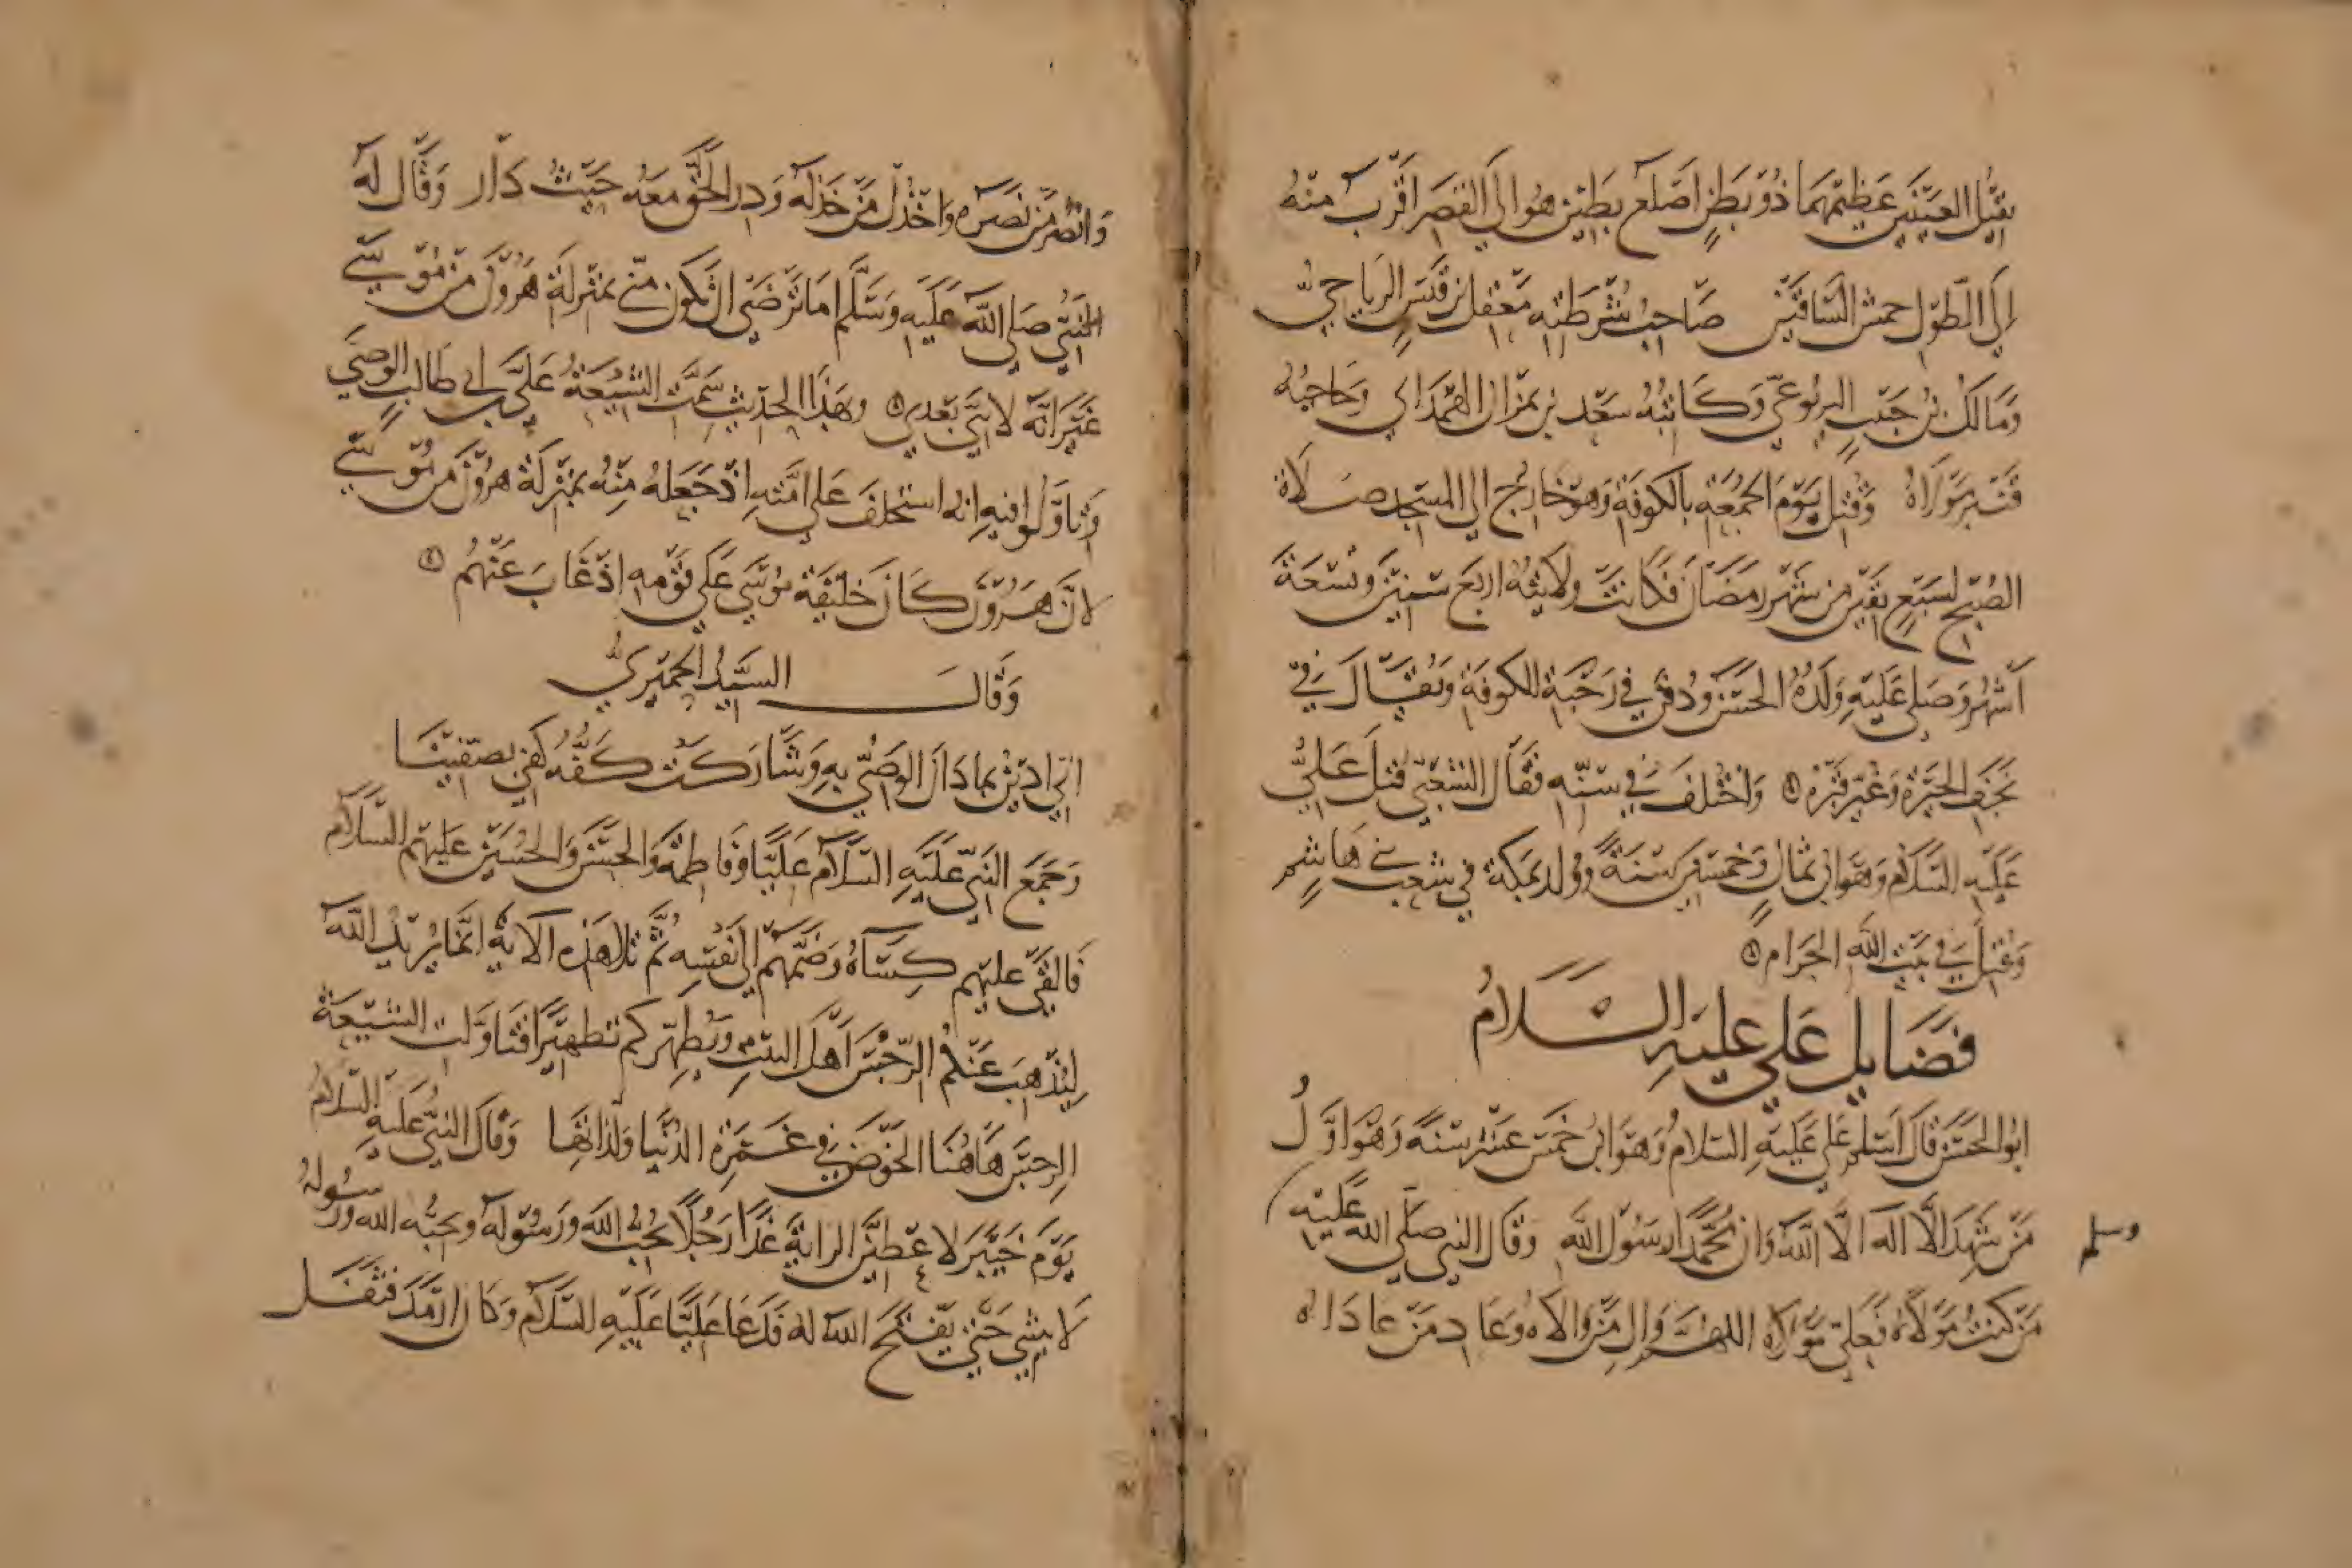 ثقيل العينين عظيمهما ذو بطن اصلع بطين هو الى القصر اقرب منه
الى الطول حمش الساقين صاحب شرطته معقل بن قيس الرياحي
ومالك بن حبيب اليربوعي وكاتبه سعيد بن نمران الهمداني وحاجبه
قنبر مولاه وقتل يوم الجمعة بالكوفة وهو خارج الى المسجد صلاة
الصبح لسبع بقين من شهر رمضان فكانت ولايته اربع سنين وتسعة
اشهر وصلى عليه ولده الحسن ودفن في رحبة الكوفة ويقال في
نجف الحيرة وغبي قبره واختلف في سنه فقال الشعبي قتل علي
عليه السلام وهو ابن ثمان وخمسين سنة وولد بمكة في شعب بني هاشم
وقيل في بيت الله الحرام
فضايل علي عليه السلام
ابو الحسن قال اسلم علي عليه السلام وهو ابن خمس عشرة سنة وهو اول
من شهد الا اله الا الله وان محمدا رسول الله وقال النبي صلى الله عليه
وسلم
من كنت مولاه فعلي مولاه اللهم وال من والاه وعاد من عاداه
وانصر من نصره واخذل من خذله ودر الحق معه حيث دار وقال له
النبي صلى الله عليه وسلم اما ترضى ان تكون مني بمنزلة هرون من موسى
غير انه لا نبي بعدي وبهذا الحديث سمت الشيعة علي بن ابي طالب الوصي
وتاولوا فيه انه استخلف على امته اذ جعله منه بمنزلة هرون من موسى
لان هرون كان خليفة موسى على قومه اذ غاب عنهم
وقال السيد الحميري
اني ادين بما دان الوصي به وشاركت كفه كفي بصفينا
وجمع النبي عليه السلام عليا وفاطمة والحسن والحسين عليهم السلام
فالقى عليهم كساه وضمهم الى نفسه ثم تلا هذه الاية انما يريد الله
ليذهب عنكم الرجس اهل البيت ويطهركم تطهيرا فتاولت الشيعة
الرجس هاهنا الخوض في غمرة الدنيا ولذاتها وقال النبي عليه السلام
يوم خيبر لاعطين الراية غدا رجلا يحب الله ورسوله ويحبه الله ورسوله
لا ينثني حتى يفتح الله له فدعا عليا عليه السلام وكان ارمد فتفل